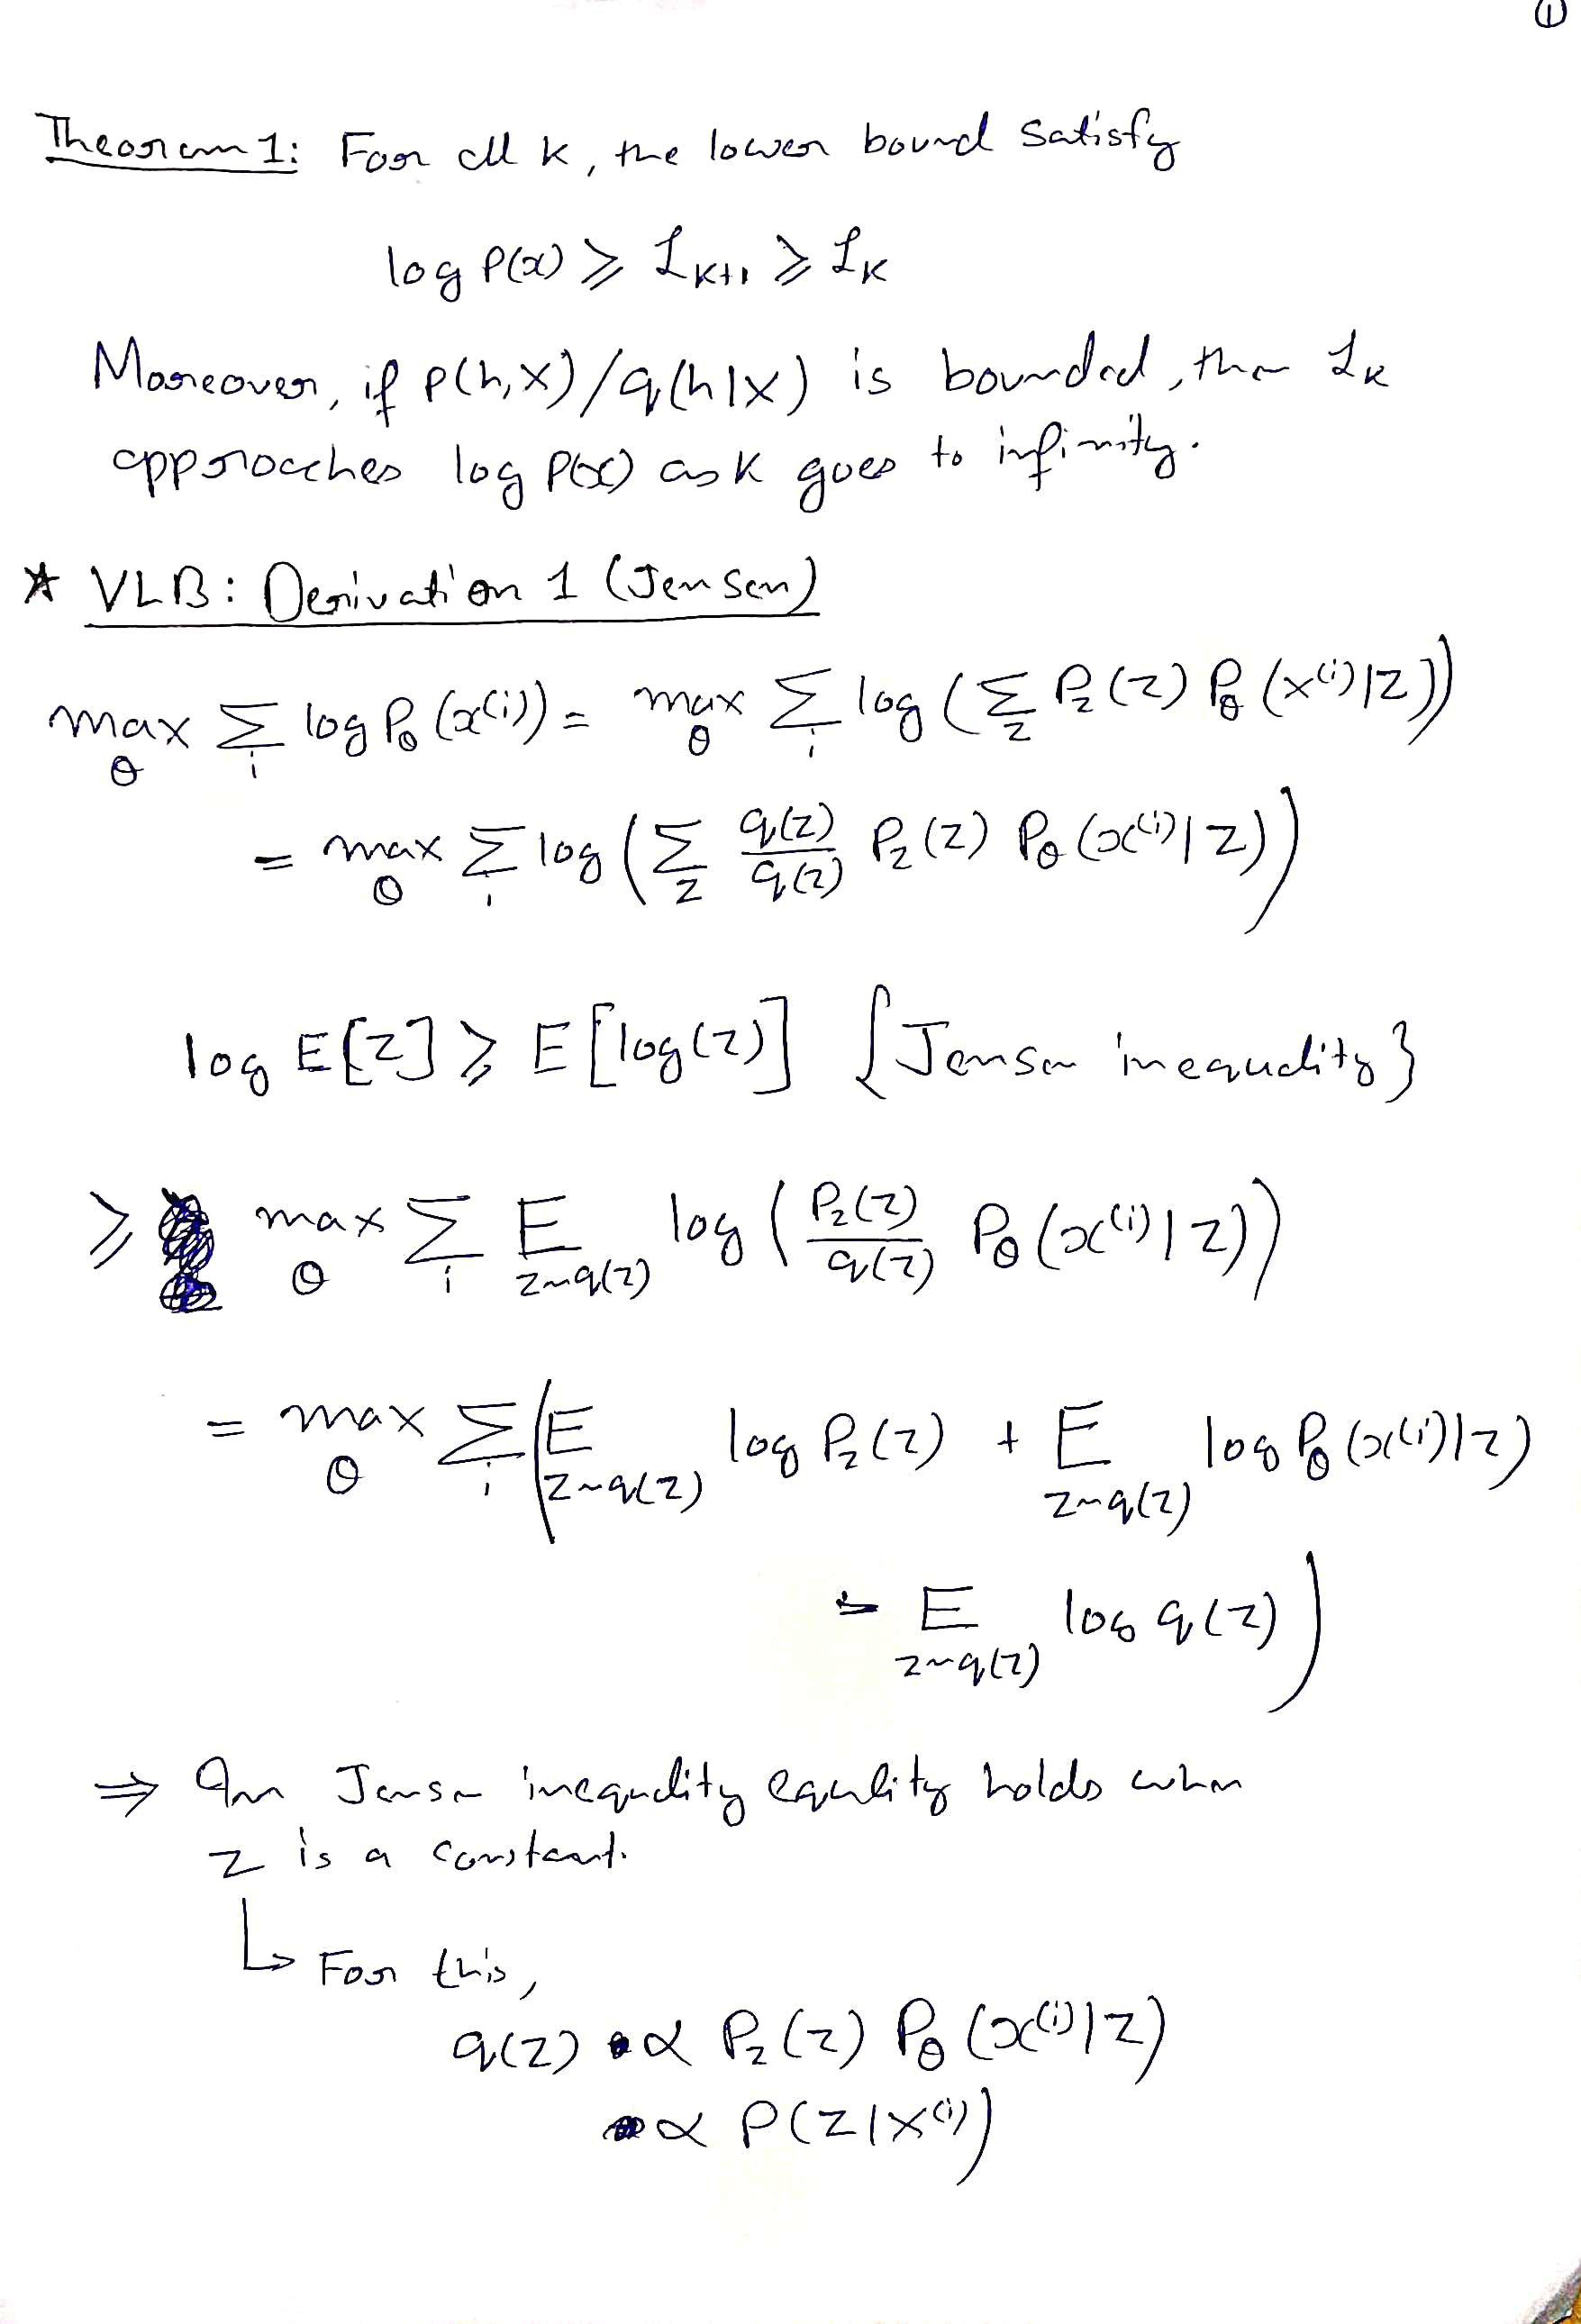 ①
Theorem 1: For all k, the lower bound satisfy
log P(x) ⩾ ℒ_{K+1} ⩾ ℒ_K
Moreover, if P(h,x)/q(h|x) is bounded, then ℒ_K
approaches log P(x) as K goes to infinity.
* VLB: Derivation 1 (Jensen)
max_θ Σ_i log P_θ(x^{(i)}) = max_θ Σ_i log (Σ_z P_z(z) P_θ(x^{(i)}|z))
= max_θ Σ_i log (Σ_z q(z)/q(z) P_z(z) P_θ(x^{(i)}|z))
log E[z] ⩾ E[log(z)] {Jensen inequality}
⩾ max_θ Σ_i E_{z~q(z)} log (P_z(z)/q(z) P_θ(x^{(i)}|z))
= max_θ Σ_i (E_{z~q(z)} log P_z(z) + E_{z~q(z)} log P_θ(x^{(i)}|z)
- E_{z~q(z)} log q(z))
⇒ In Jensen inequality equality holds when
z is a constant.
↳ For this,
q(z) ∝ P_z(z) P_θ(x^{(i)}|z)
∝ P(z|x^{(i)})